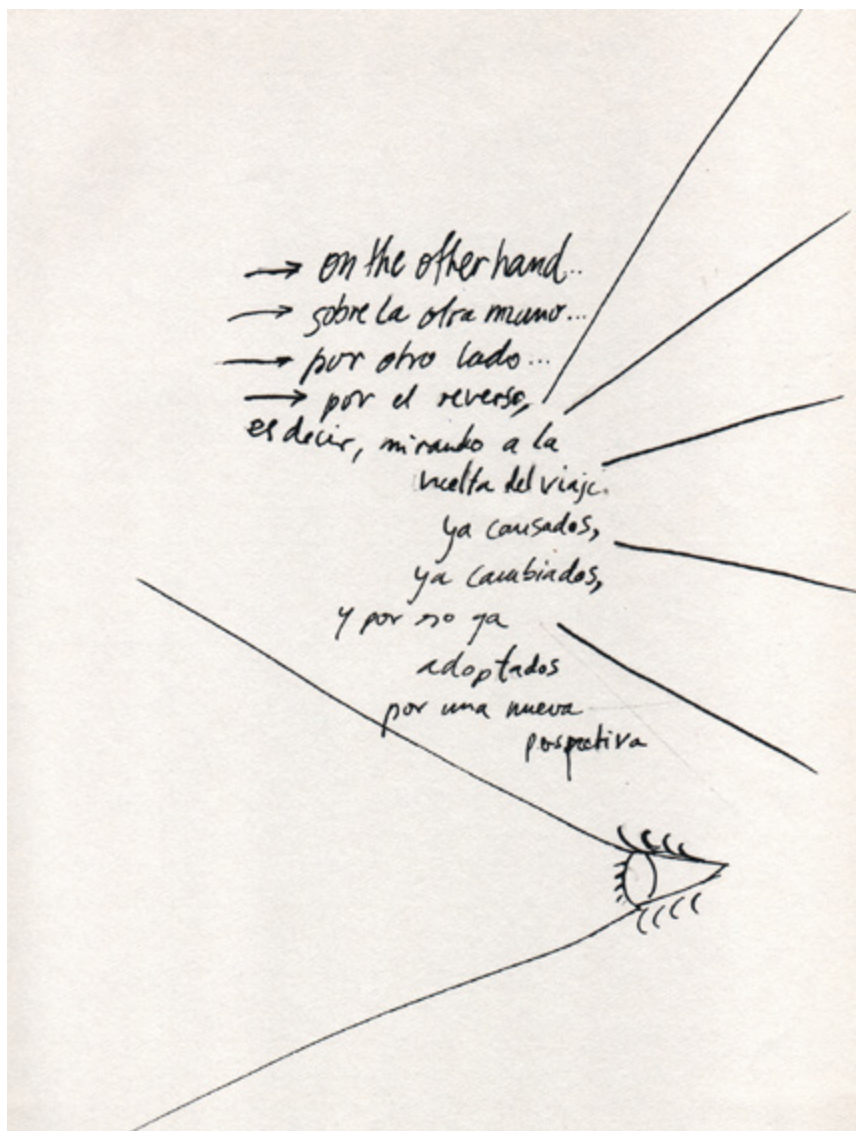 → on the other hand...
→ sobre la otra mano...
→ por otro lado...
→ por el reverso,
es decir, mirando a la
vuelta del viaje.
ya causados,
ya cambiados,
y por eso ya
adoptados
por una nueva
perspectiva